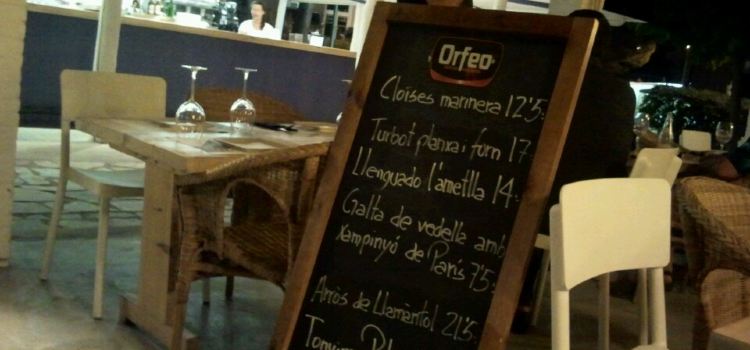 Orfeo
Cloïses marinera 12'5.
Turbot planxa i forn 17
Llenguado l'ametlla 14.
Galta de vedella amb
xampinyó de París 7'5.
Arròs de Llamàntol 21'5.